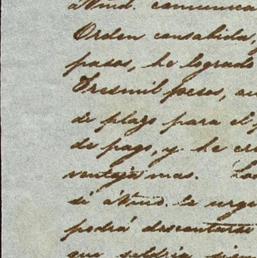 á Vmd. comunica
Orden consabida,
pasos, he logrado
Tresmil pesos, au
de plazo para el p
de pago, y he cr
ventajas mas. La
si á Vmd. le urge
podrá descontarse
que saldria siem